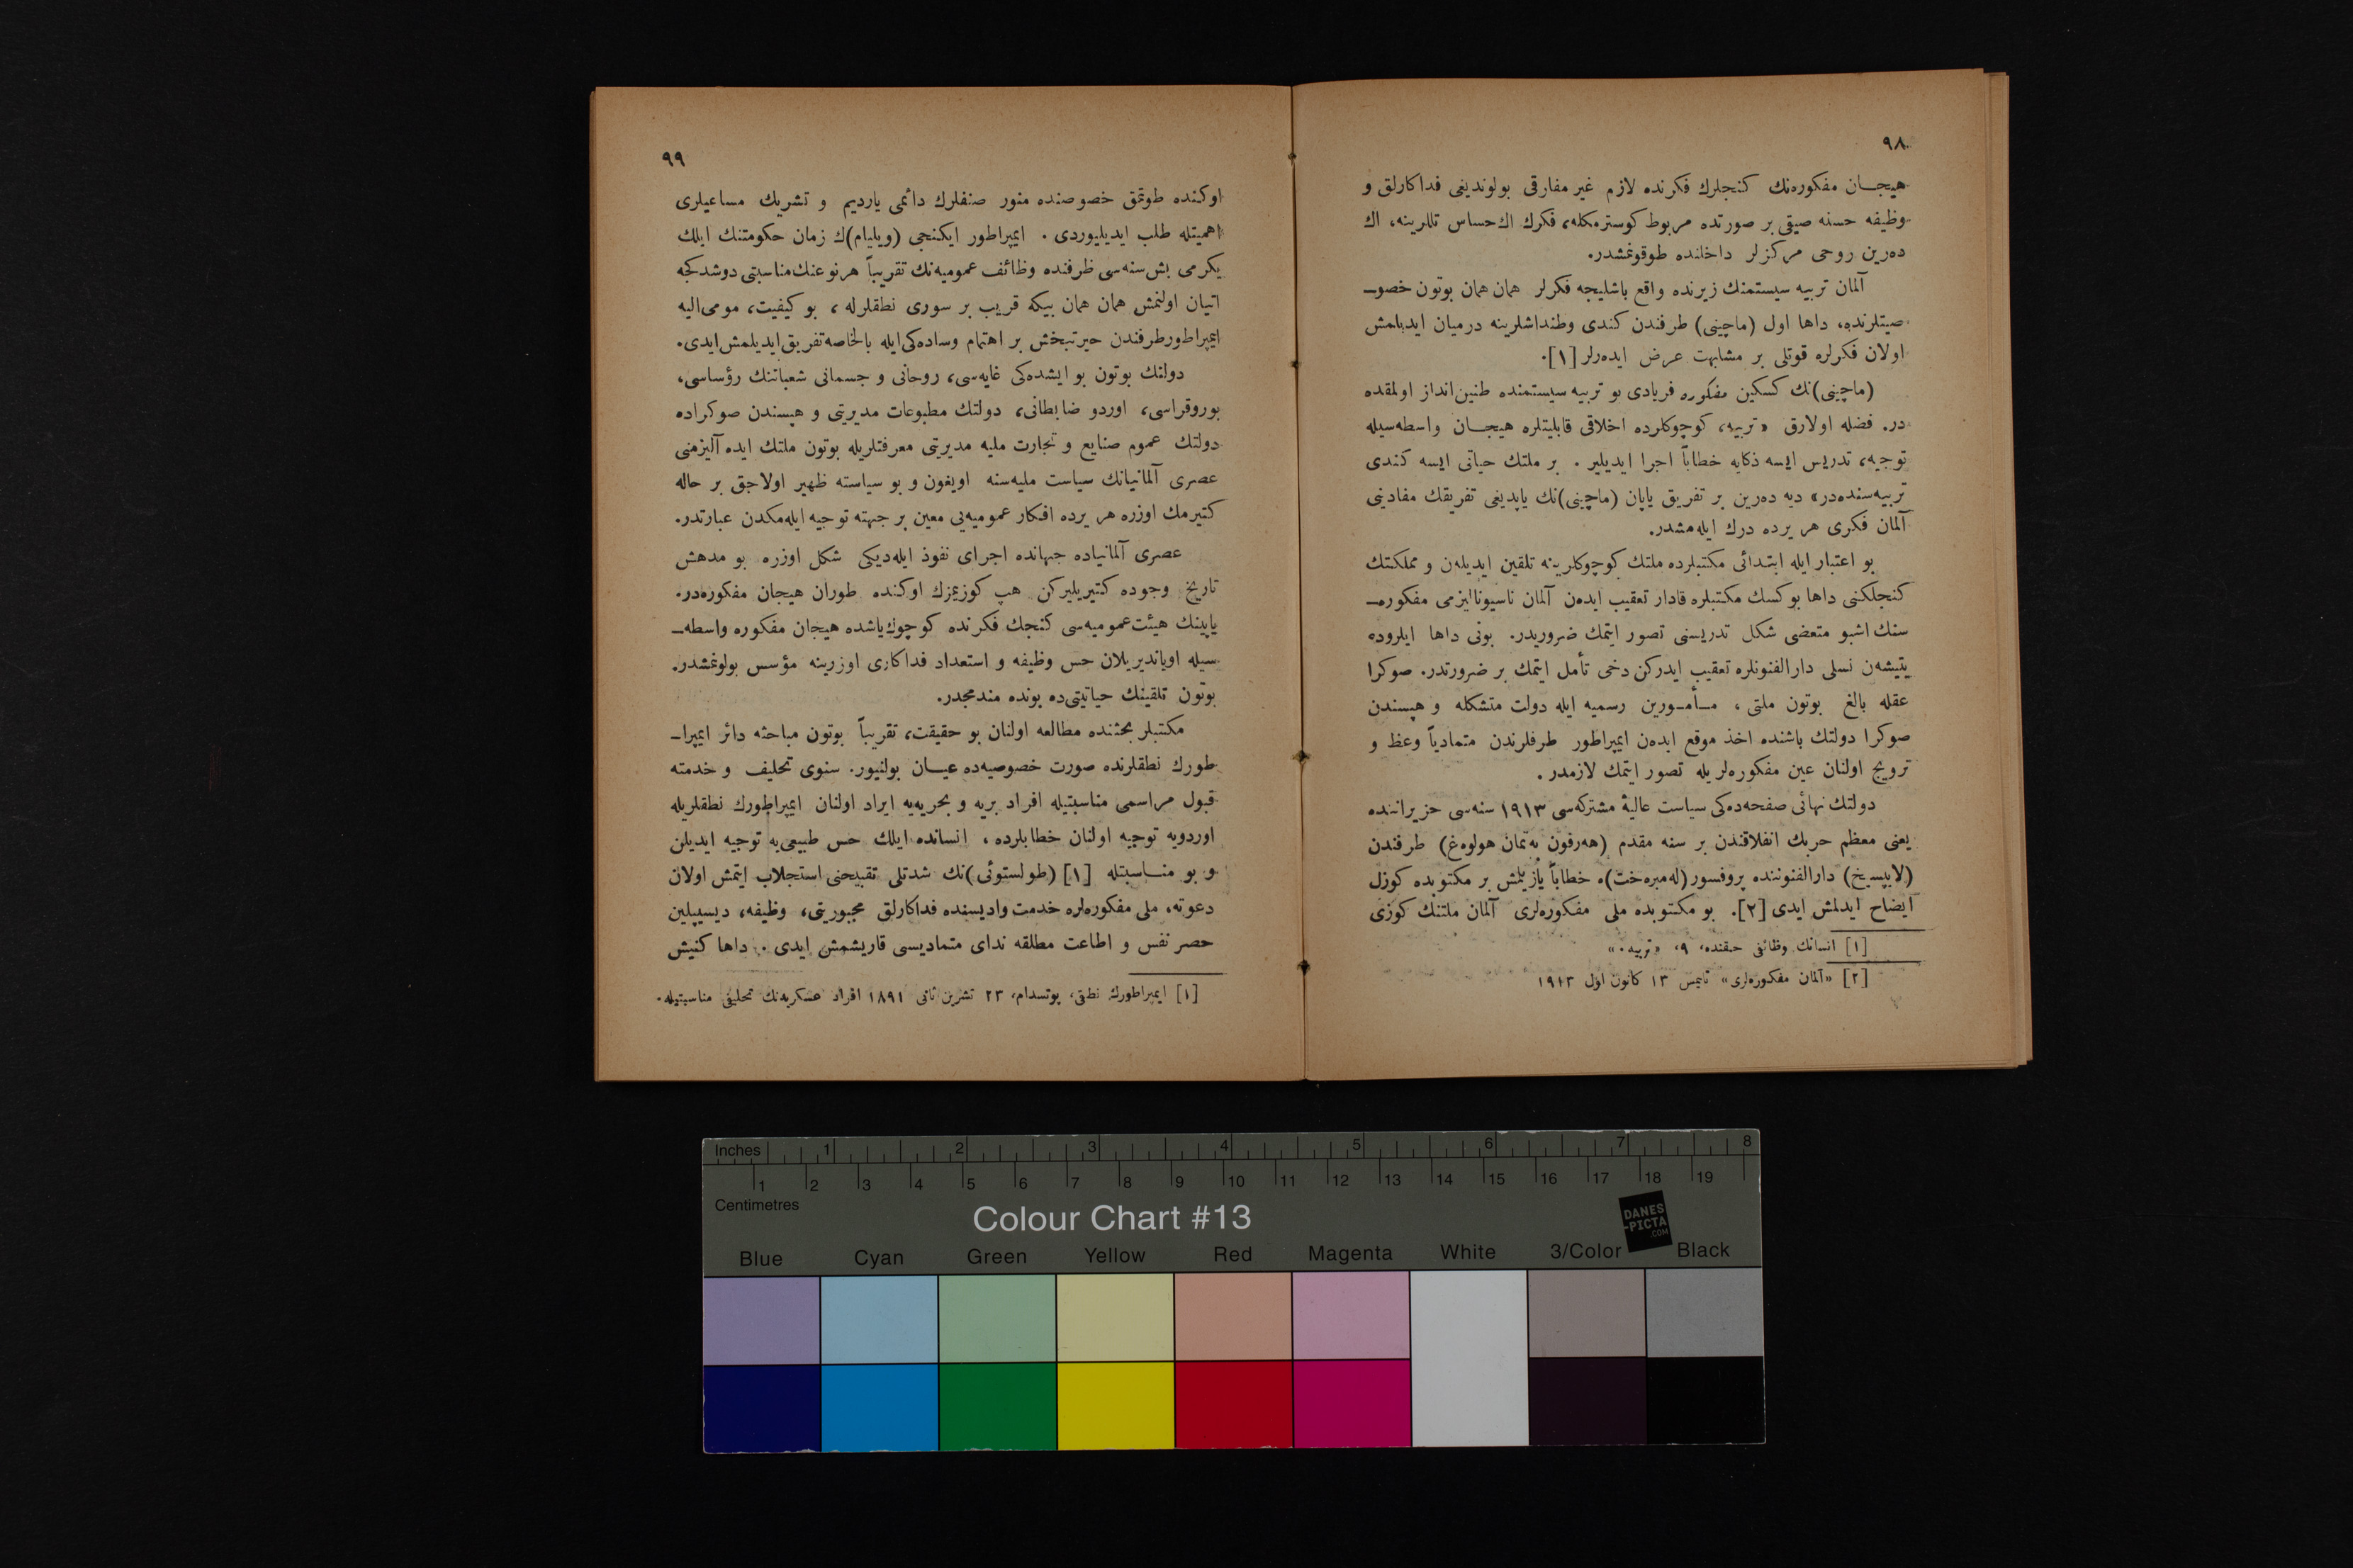 ٩٨
هیجـان مفكوره‌نك كنجلرك فكرنده لازم غیر مفارقی بولوندیغی فداكارلق و
وظیفه حسنه صیقی بر صورتده مربوط كوسترمكله، فكرك اك حساس تللرینه، اك
ده‌رین روحی مركزلر داخلنده طوقونمشدر.
آلمان تربیه سیستمنك زیرنده واقع باشلیجه فكرلر همان همان بوتون خصو-
صیتلرنده، داها اول (ماچینی) طرفندن كندی وطنداشلرینه درمیان ایدیلمش
اولان فكرلره قوتلی بر مشابهت عرض ایده‌رلر [١].
(ماچینی)نك كسكین مفكوره فریادی بو تربیه سیستمنده طنین‌انداز اولمقده
در. فضله اولارق «تربیه، كوچوكلرده اخلاقی قابلیتلره هیجـان واسطه‌سیله
توجیه، تدریس ایسه ذكایه خطاباً اجرا ایدیلیر . بر ملتك حیاتی ایسه كندی
تربیه‌سنده‌در» دیه ده‌رین بر تفریق یاپان (ماچینی)نك یاپدیغی تفریقك مفادینی
آلمان فكری هر یرده درك ایله‌مشدر.
بو اعتبار ایله ابتدائی مكتبلرده ملتك كوچوكلرینه تلقین ایدیله‌ن و مملكتك
كنجلكنی داها یوكسك مكتبلره قادار تعقیب ایده‌ن آلمان ناسیونالیزمی مفكوره-
سنك اشبو متعضی شكل تدریسنی تصور ایتمك ضروریدر. بونی داها ایلروده
یتیشه‌ن نسلی دارالفنونلره تعقیب ایدركن دخی تأمل ایتمك بر ضرورتدر. صوكرا
عقله بالغ بوتون ملتی ، مـأمـورین رسمیه ایله دولت متشكله و هپسندن
صوكرا دولتك باشنده اخذ موقع ایده‌ن ایمپراطور طرفلرندن متمادیاً وعظ و
ترویج اولنان عین مفكوره‌لر یله تصور ایتمك لازمدر .
دولتك نهائی صفحه‌ده‌كی سیاست عالیهٔ مشتركه‌سی ١٩١٣ سنه‌سی حزیراننده
یعنی معظم حربك انفلاقندن بر سنه مقدم (هه‌رفون به‌تمان هولوه‌غ) طرفندن
(لایپسیخ) دارالفنوننده پروفسور (له‌مبره‌خت)ه خطاباً یازیلمش بر مكتوبده كوزل
ایضاح ایدلمش ایدی [٢]. بو مكتوبده ملی مفكوره‌لری آلمان ملتنك كوزی
[١] انسانك وظائفی حقنده، ٩، «تربیه.»
[٢] «آلمان مفكوره‌لری» تایمس ١٣ كانون اول ١٩١٣
٩٩
اوكنده طوتمق خصوصنده منور صنفلرك دائمی یاردیم و تشریك مساعیلری
اهمیتله طلب ایدیلیوردی . ایمپراطور ایكنجی (ویلیام)ك زمان حكومتنك ایلك
یكرمی بش سنه‌سی ظرفنده وظائف عمومیه‌نك تقریباً هر نوعنك مناسبتی دوشدكجه
اتیان اولنمش همان همان بیكه قریب بر سوری نطقلرله ، بو كیفیت، مومی‌الیه
ایمپراطور طرفندن حیرتبخش بر اهتمام و ساده‌كی ایله بالخاصه تفریق ایدیلمش ایدی.
دولتك بوتون بو ایشده‌كی غایه‌سی، روحانی و جسمانی شعباتنك رؤساسی،
بوروقراسی، اوردو ضابطانی، دولتك مطبوعات مدیریتی و هپسندن صوكراده
دولتك عموم صنایع و تجارت ملیه مدیریتی معرفتلریله بوتون ملتك ایده آلیزمنی
عصری آلمانیانك سیاست ملیه‌سنه اویغون و بو سیاسته ظهیر اولاجق بر حاله
كتیرمك اوزره هر یرده افكار عمومیه‌یی معین بر جهته توجیه ایله‌مكدن عبارتدر.
عصری آلمانیاده جهانده اجرای نفوذ ایله‌دیكی شكل اوزره بو مدهش
تاریخ وجوده كتیریلیركن هپ كوزیمزك اوكنده طوران هیجان مفكوره‌در.
یاپینك هیئت عمومیه‌سی كنجك فكرنده كوچوك یاشده هیجان مفكوره واسطه-
سیله اویاندیریلان حس وظیفه و استعداد فداكاری اوزرینه مؤسس بولونمشدر.
بوتون تلقینك حیاتیتی‌ده بونده مندمجدر.
مكتبلر بحثنده مطالعه اولنان بو حقیقت، تقریباً بوتون مباحثه دائر ایمپرا-
طورك نطقلرنده صورت خصوصیه‌ده عیـان بولنیور. سنوی تحلیف و خدمته
قبول مراسمی مناسبتیله افراد بریه و بحریه‌یه ایراد اولنان ایمپراطورك نطقلریله
اوردویه توجیه اولنان خطابلرده ، انسانده ایلك حس طبیعی‌یه توجیه ایدیلن
و بو منـاسبتله [١] (طولستوئی)نك شدتلی تقبیحنی استجلاب ایتمش اولان
دعوته، ملی مفكوره‌لره خدمت وادیسنده فداكارلق مجبوریتی، وظیفه، دیسیپلین
حصر نفس و اطاعت مطلقه ندای متمادیسی قاریشمش ایدی . داها كنیش
[١] ایمپراطورك نطقی، پوتسدام، ٢٣ تشرین ثانی ١٨٩١ افراد عسكریه‌نك تحلیفی مناسبتیله.
Inches 1 2 3 4 5 6 7 8
1 2 3 4 5 6 7 8 9 10 11 12 13 14 15 16 17 18 19
Centimetres
Colour Chart #13
DANES
-PICTA
.COM
Blue Cyan Green Yellow Red Magenta White 3/Color Black